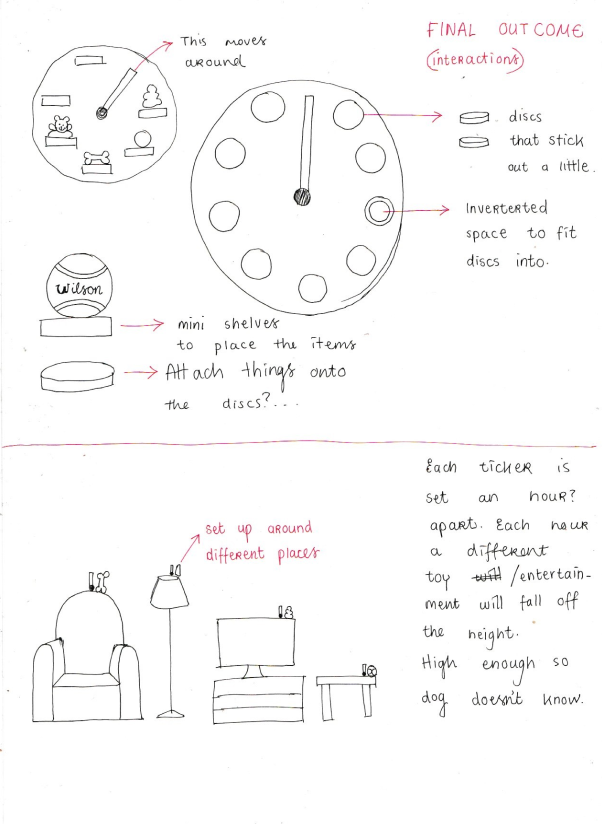 FINAL OUTCOME
(interactions)
This moves
around
discs
that stick
out a little.
Inverterted
space to fit
discs into.
Wilson
mini shelves
to place the items
Attach things onto
the discs?....
Each ticker is
set an hour?
apart. Each hour
a different
toy will /entertain-
ment will fall off
the height.
High enough so
dog doesn't know.
set up around
different places